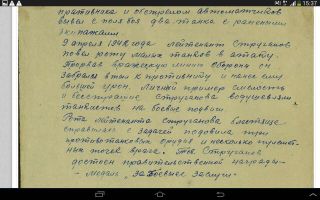 15:37
противника и обстрелом автоматчиков
вывел с поля боя два танка с ранеными
экипажами
9 апреля 1942 года лейтенант Стругачов
повел роту малых танков в атаку.
Прорвав вражескую линию обороны он
забрался в тыл к противнику и нанес ему
большой урон. Личный пример смелость
и бесстрашие Стругачова воодушевили
танкистов на боевые подвиги
Рота лейтенанта Стругачова
справилась с задачей подавила три
противотанковых орудия и несколько пулемет-
ных точек врага. Тов. Стругачов
достоин правительственной награды-
- Медаль "За Боевые заслуги"